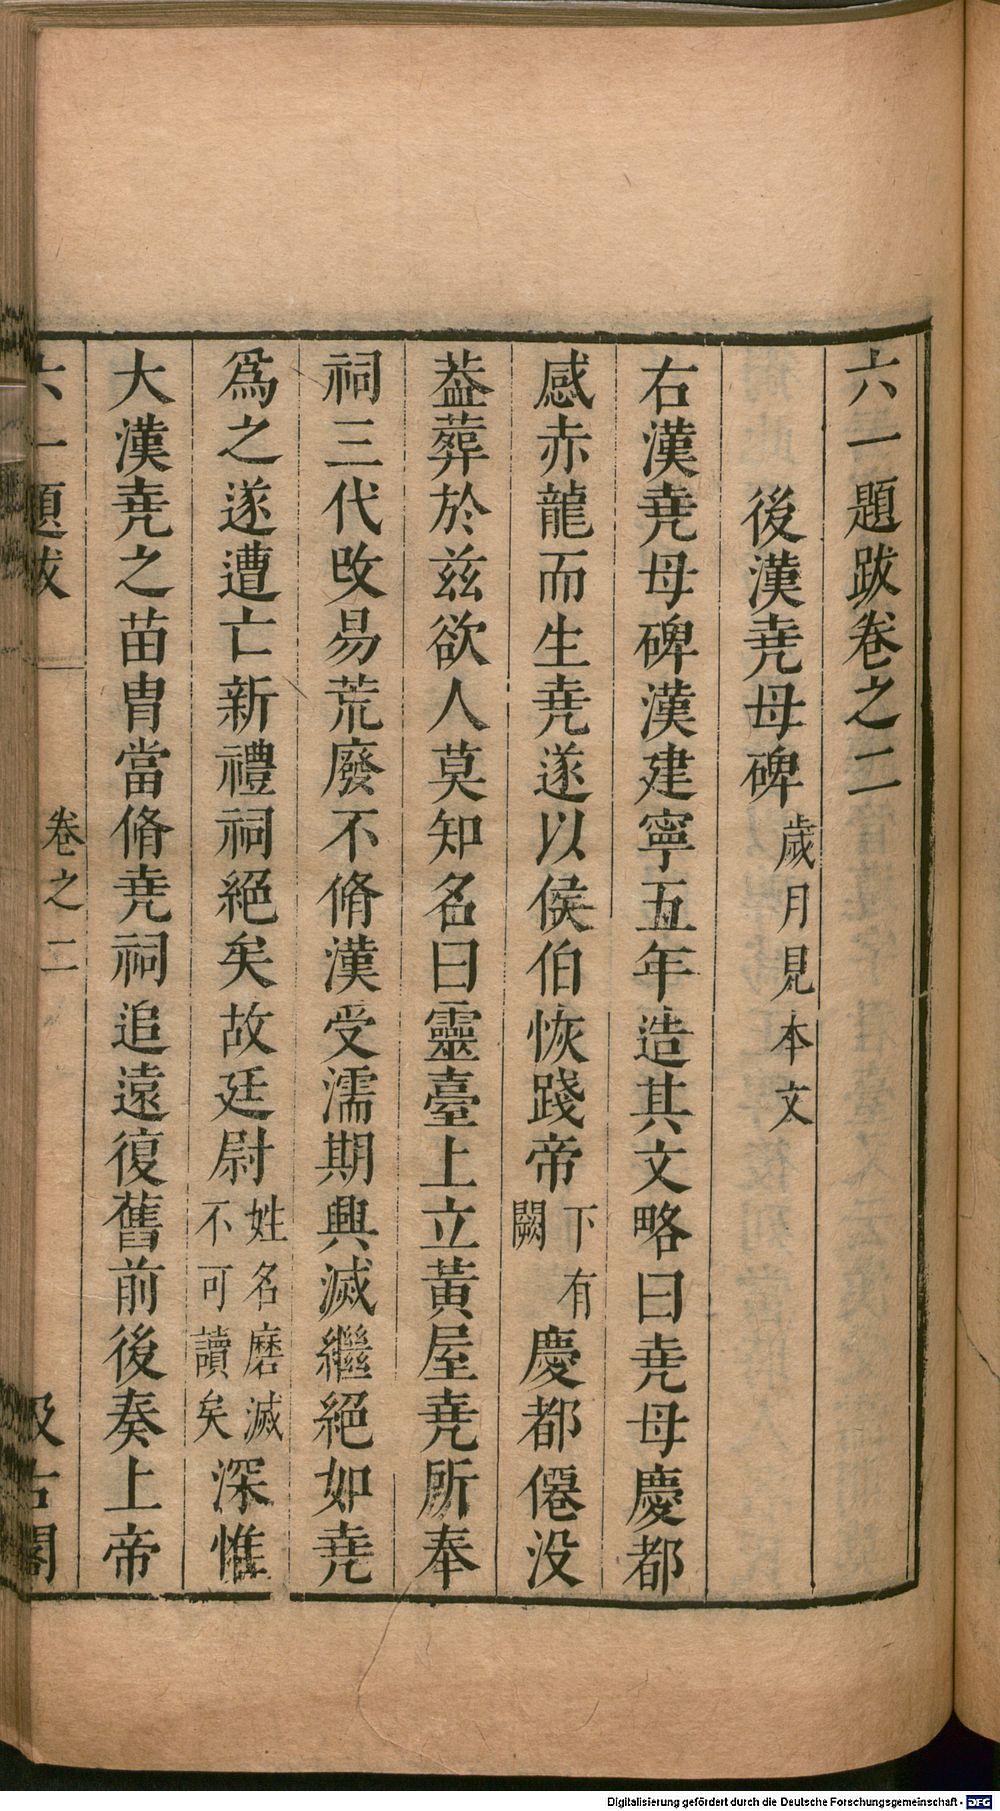 六一題跋卷之二
後漢堯母碑歲月見本文
右漢堯母碑漢建寧五年造其文略曰堯母慶都
感赤龍而生堯遂以侯伯恢踐帝下有闕慶都僊没
葢葬於兹欲人莫知名曰靈臺上立黃屋堯所奉
祠三代改易荒廢不脩漢受濡期興滅繼絕如堯
為之遂遭亡新禮祠絕矣故廷尉姓名磨滅不可讀矣深惟
大漢堯之苗胄當脩堯祠追遠復舊前後奏上帝
六一題跋 卷之二 汲古閣
Digitalisierung gefördert durch die Deutsche Forschungsgemeinschaft - DFG